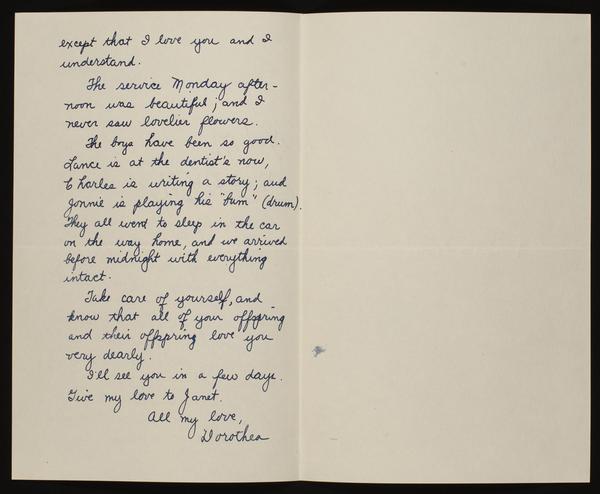 except that I love you and I
understand.
The service Monday after-
noon was beautiful; and I
never saw lovelier flowers.
The boys have been so good.
Lance is at the dentist's now,
Charles is writing a story; and
Jonnie is playing his "bum" (drum).
They all went to sleep in the car
on the way home, and we arrived
before midnight with everything
intact.
Take care of yourself, and
know that all of your offspring
and their offspring love you
very dearly.
I'll see you in a few days.
Give my love to Janet.
All my love,
Dorothea